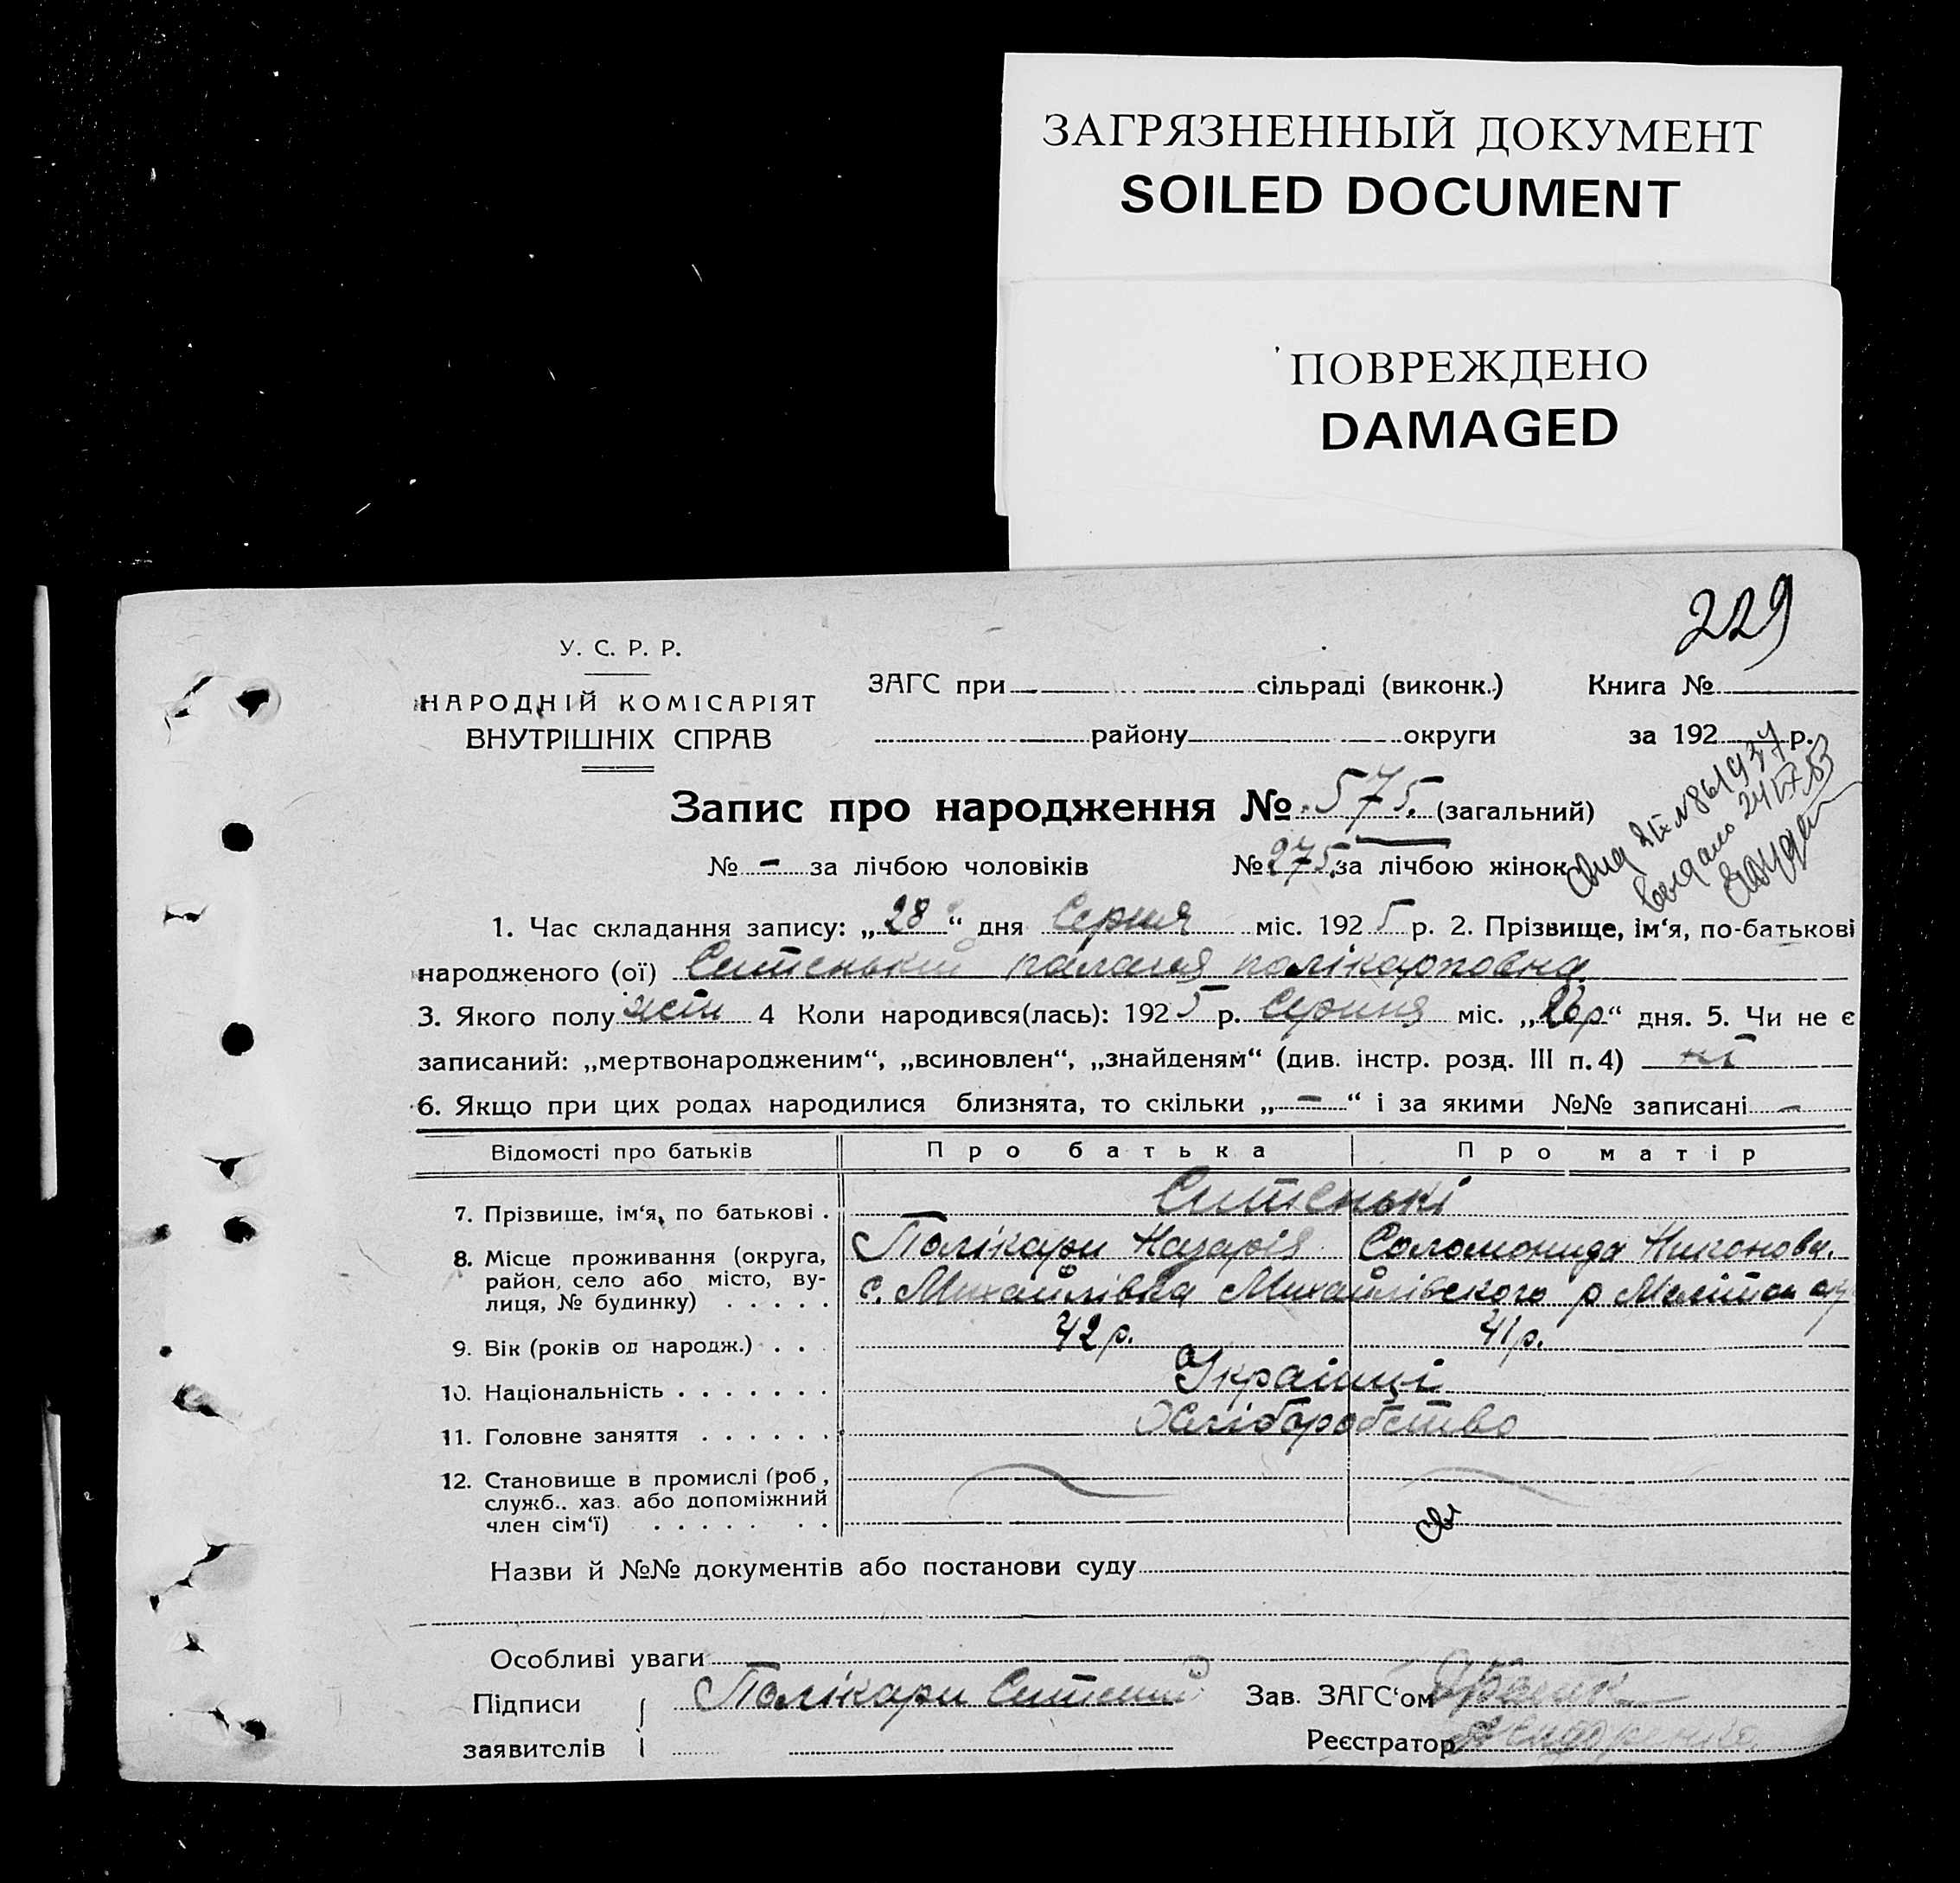 ЗАГРЯЗНЕННЫЙ ДОКУМЕНТ
SOILED DOCUMENT
ПОВРЕЖДЕНО
DAMAGED
229
У. С. Р. Р.
НАРОДНІЙ КОМІСАРІЯТ
ВНУТРІШНІХ СПРАВ
ЗАГС при сільраді (виконк.) Книга №
району округи за 192 р.
Запис про народження № 575. (загальний)
№ - за лічбою чоловіків № 275 за лічбою жінок
1. Час складання запису: „28“ дня Серпня міс. 1925 р. 2. Прізвище, ім‘я, по-батькові
народженого (ої) Ситенький палагея полікарповна
3. Якого полу жін 4 Коли народився(лась): 1925 р. Серпня міс. „26р“ дня. 5. Чи не є
записаний: „мертвонародженим“, „всиновлен“, „знайденям“ (див. інстр. розд. III п. 4) ні
6. Якщо при цих родах народилися близнята, то скільки „-“ і за якими №№ записані -
Відомості про батьків Про батька Про матір
7. Прізвище, ім‘я, по батькові . Ситенькі
Полікарп Назарів Соломонида Никонова.
8. Місце проживання (округа,
район, село або місто, ву-
лиця, № будинку) . . . . . с. Михайлівка Михайлівского р Мелітоп окр
9. Вік (років од народж.) . . 42 р. 41 р.
10. Національність . . . . . . . Українці
11. Головне заняття . . . . . . Хліборобство
12. Становище в промислі (роб,
служб.. хаз. або допоміжний
член сім‘ї) . . . . . . .
Назви й №№ документів або постанови суду
Особливі уваги
Підписи Полікарп Ситений Зав. ЗАГС‘ом
заявителів Реєстратор